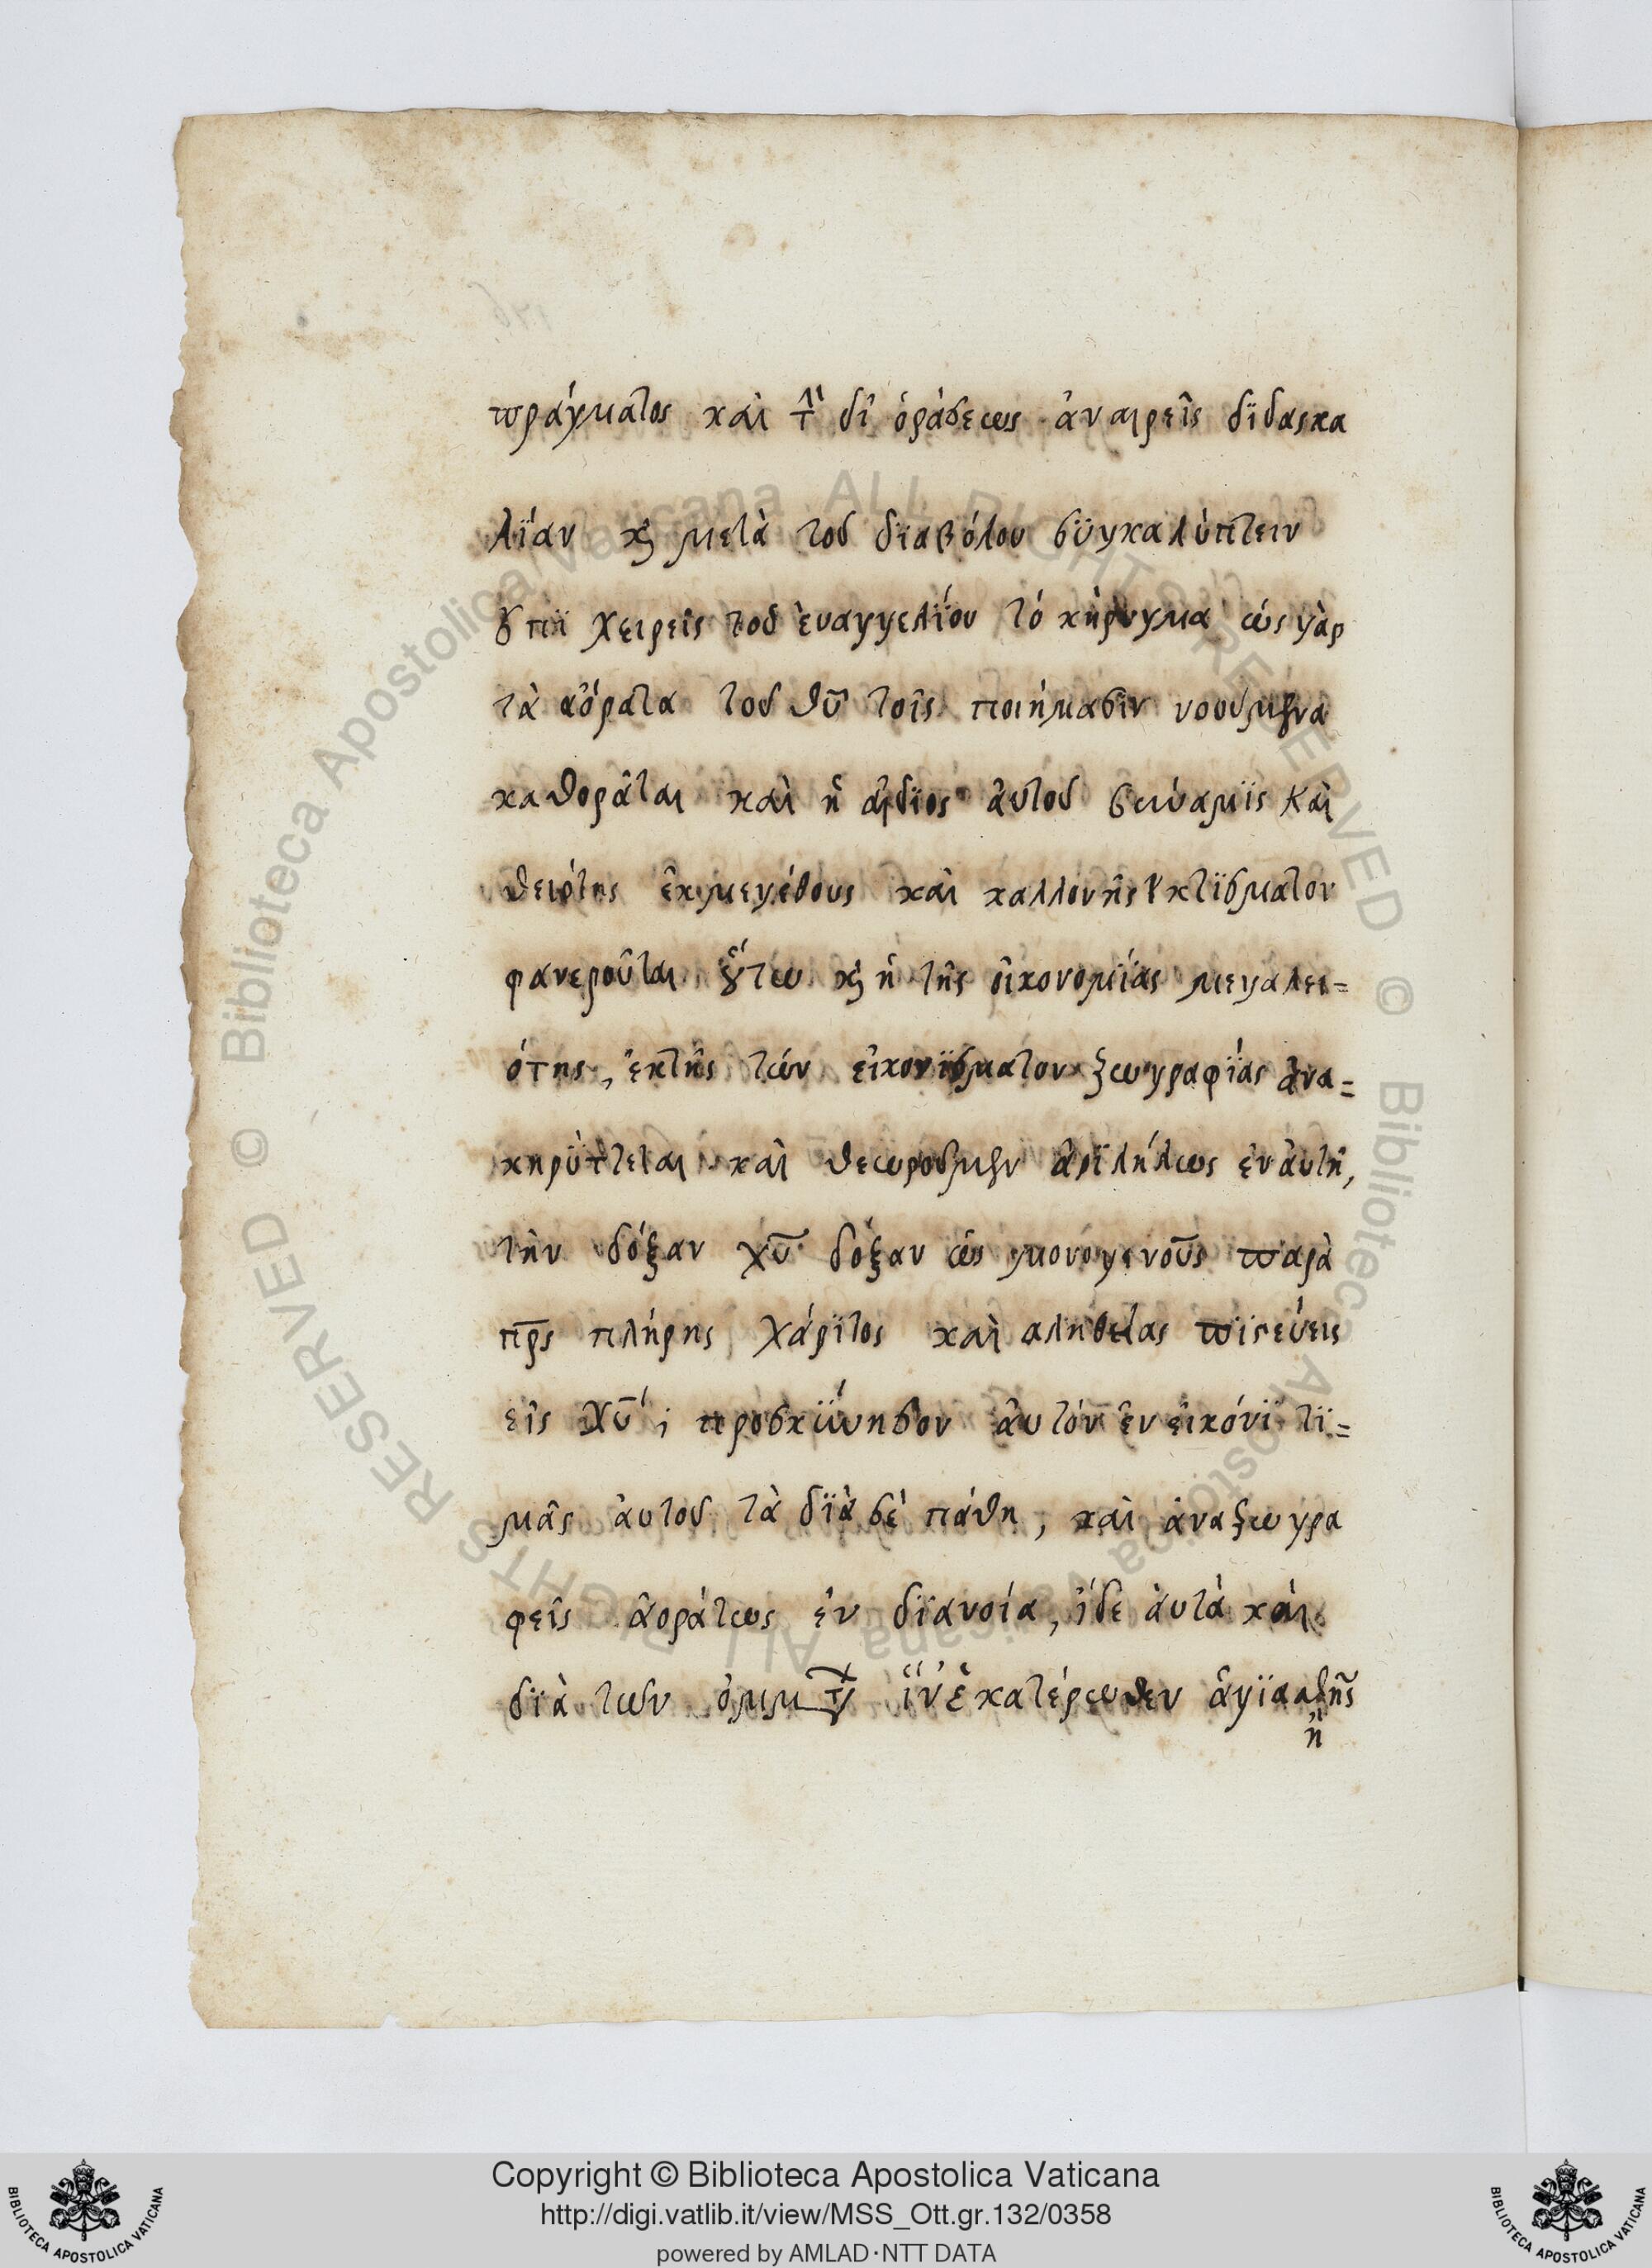 πράγματος καὶ τὴ δϊ ὁράσεως ἀναιρεῖς δϊδασκα
λϊαν κ μετὰ τοῦ διαβόλου συγκαλύπτειν
ȣ̓πϊ χειρεῖς τοῦ ἐυαγγελΐου τό κήρυγμα ὡς γὰρ
τὰ ἀόρατα τοῦ θῦ τοῖς ποιήμασϊν νοούμενα
καθορᾶται καὶ ἡ ἀΐδϊος ἀυτοῦ δύναμϊς Καὶ
θειότης ἐκ μεγέθους καὶ καλλονῆς κτϊσματον
φανεροῦται ȣ̔́τω κ ἡ τῆς οἰκονομΐας μεγαλει=
ότης, ἐκτῆς τῶν εἰκονϊσματον ζωγραφΐας ἀνα=
κηρύττεται καὶ θεωροῦμεν ἀρϊλήλως ἐν ἀυτῆ,
τὴν δόξαν χῦ δόξαν ὡς μονογενοῦς παρὰ
πρς πλήρης χάρϊτος καὶ αληθείας πϊστεύεις
εἰς χῦ; προσκΰνησον ἀυτόν ἐν εἰκόνϊ τϊ=
μᾶς ἀυτοῦ τὰ δϊὰ σὲ πάθη, καὶ ἀναζωγρα
φεῖς ἀοράτως ἐν δϊανοία, ἴδε ἀυτὰ καὶ
δϊὰ τῶν ὀμμτ ἵν ἑκατέρωθεν ἁγϊασθῆς
ἢ
Copyright © Biblioteca Apostolica Vaticana
http://digi.vatlib.it/view/MSS_Ott.gr.132/0358
powered by AMLAD·NTT DATA
BIBLIOTECA APOSTOLICA VATICANA
BIBLIOTECA APOSTOLICA VATICANA
© Biblioteca Apostolica Vaticana ALL RIGHTS RESERVED
© Biblioteca Apostolica Vaticana ALL RIGHTS RESERVED